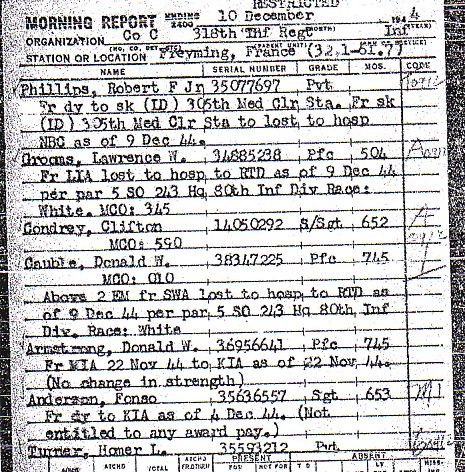 RESTRICTED
MORNING REPORT ENDING 2400 10 December 1944
ORGANIZATION Co C 318th Inf Regt Inf
STATION OR LOCATION Freyming, France (32.1-61.7)
NAME SERIAL NUMBER GRADE MOS. CODE
Phillips, Robert F Jr 35077697 Pvt
Fr dy to sk (ID) 305th Med Clr Sta. Fr sk
(ID) 305th Med Clr Sta to lost to hosp
NBC as of 9 Dec 44.
Grooms, Lawrence W. 34885238 Pfc 504
Fr LIA lost to hosp to RTD as of 9 Dec 44
per par 5 SO 243 Hq 80th Inf Div Race:
White. MCO: 345
Condrey, Clifton 14050292 S/Sgt 652 A
MCO: 590
Cauble, Donald W. 38347225 Pfc 745
MCO: 010
Above 2 EM fr SWA lost to hosp to RTD as
of 9 Dec 44 per par 5 SO 243 Hq 80th Inf
Div. Race: White
Armstrong, Donald W. 36956641 Pfc 745
Fr MIA 22 Nov 44 to KIA as of 22 Nov 44.
(No change in strength)
Anderson, Fonso 35636557 Sgt 653
Fr dy to KIA as of 4 Dec 44. (Not
entitled to any award pay.)
Turner, Homer L. 35593212 Pvt
PRESENT ABSENT